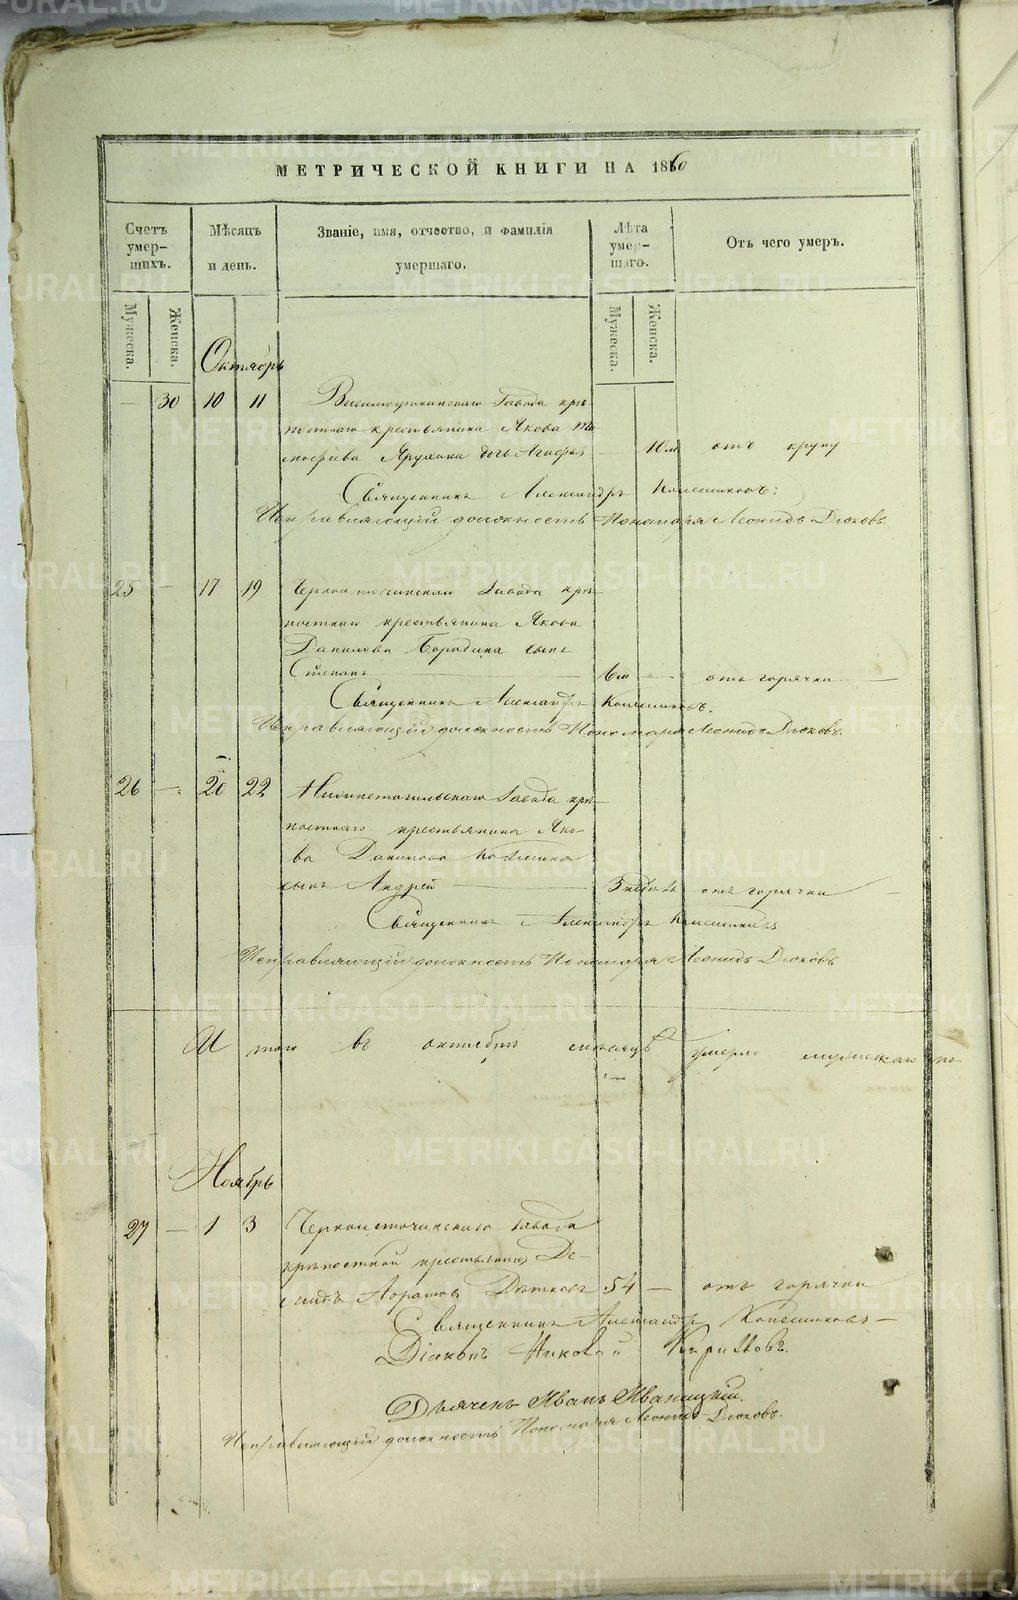 МЕТРИЧЕСКОЙ КНИГИ НА 1860
Счетъ умер-шихъ.
Мѣсяцъ и день.
Званіе, имя, отчество, и фамилія умершаго.
Лѣта умер-шаго.
Отъ чего умеръ.
Мужеска.
Женска.
Мужеска.
Женска.
Октябрь
— 30 10 11 Висимоуткинскаго Завода крѣ-
постнаго крестьянина Якова Ти-
дочь — от крупу
Священникъ Александръ
Исправляющій должность Пономаря Леонидъ Дюковъ.
25 — 17 19 Черноисточинскаго Завода крѣ-
постнаго крестьянина Якова
Данилова Бородина сынъ
Степанъ — 6м — отъ горячки —
Священникъ Александръ
Исправляющій должность Пономаря Леонидъ Дюковъ.
26 — 20 22 Нижнетагильскаго Завода крѣ-
постнаго крестьянина Яко-
ва Данилова
сынъ Андрей — отъ горячки —
Священникъ Александръ
Исправляющій должность Пономаря Леонидъ Дюковъ
И того въ октябрѣ мѣсяцѣ умерло мужескаго по
Ноябрь
27 — 1 3 Черноисточинскаго завода
крѣпостной крестьянинъ Де-
мидъ 54 — отъ горячки
Священникъ Александръ
Діаконъ Николай
Дьячекъ Иванъ Иваницкій.
Исправляющій должность Пономаря Леонидъ Дюковъ.
METRIKI.GASO-URAL.RU